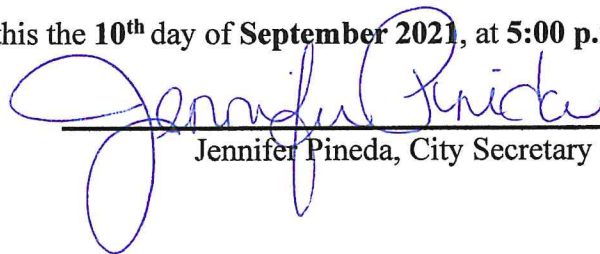 this the 10th day of September 2021, at 5:00 p.
Jennifer Pineda
Jennifer Pineda, City Secretary